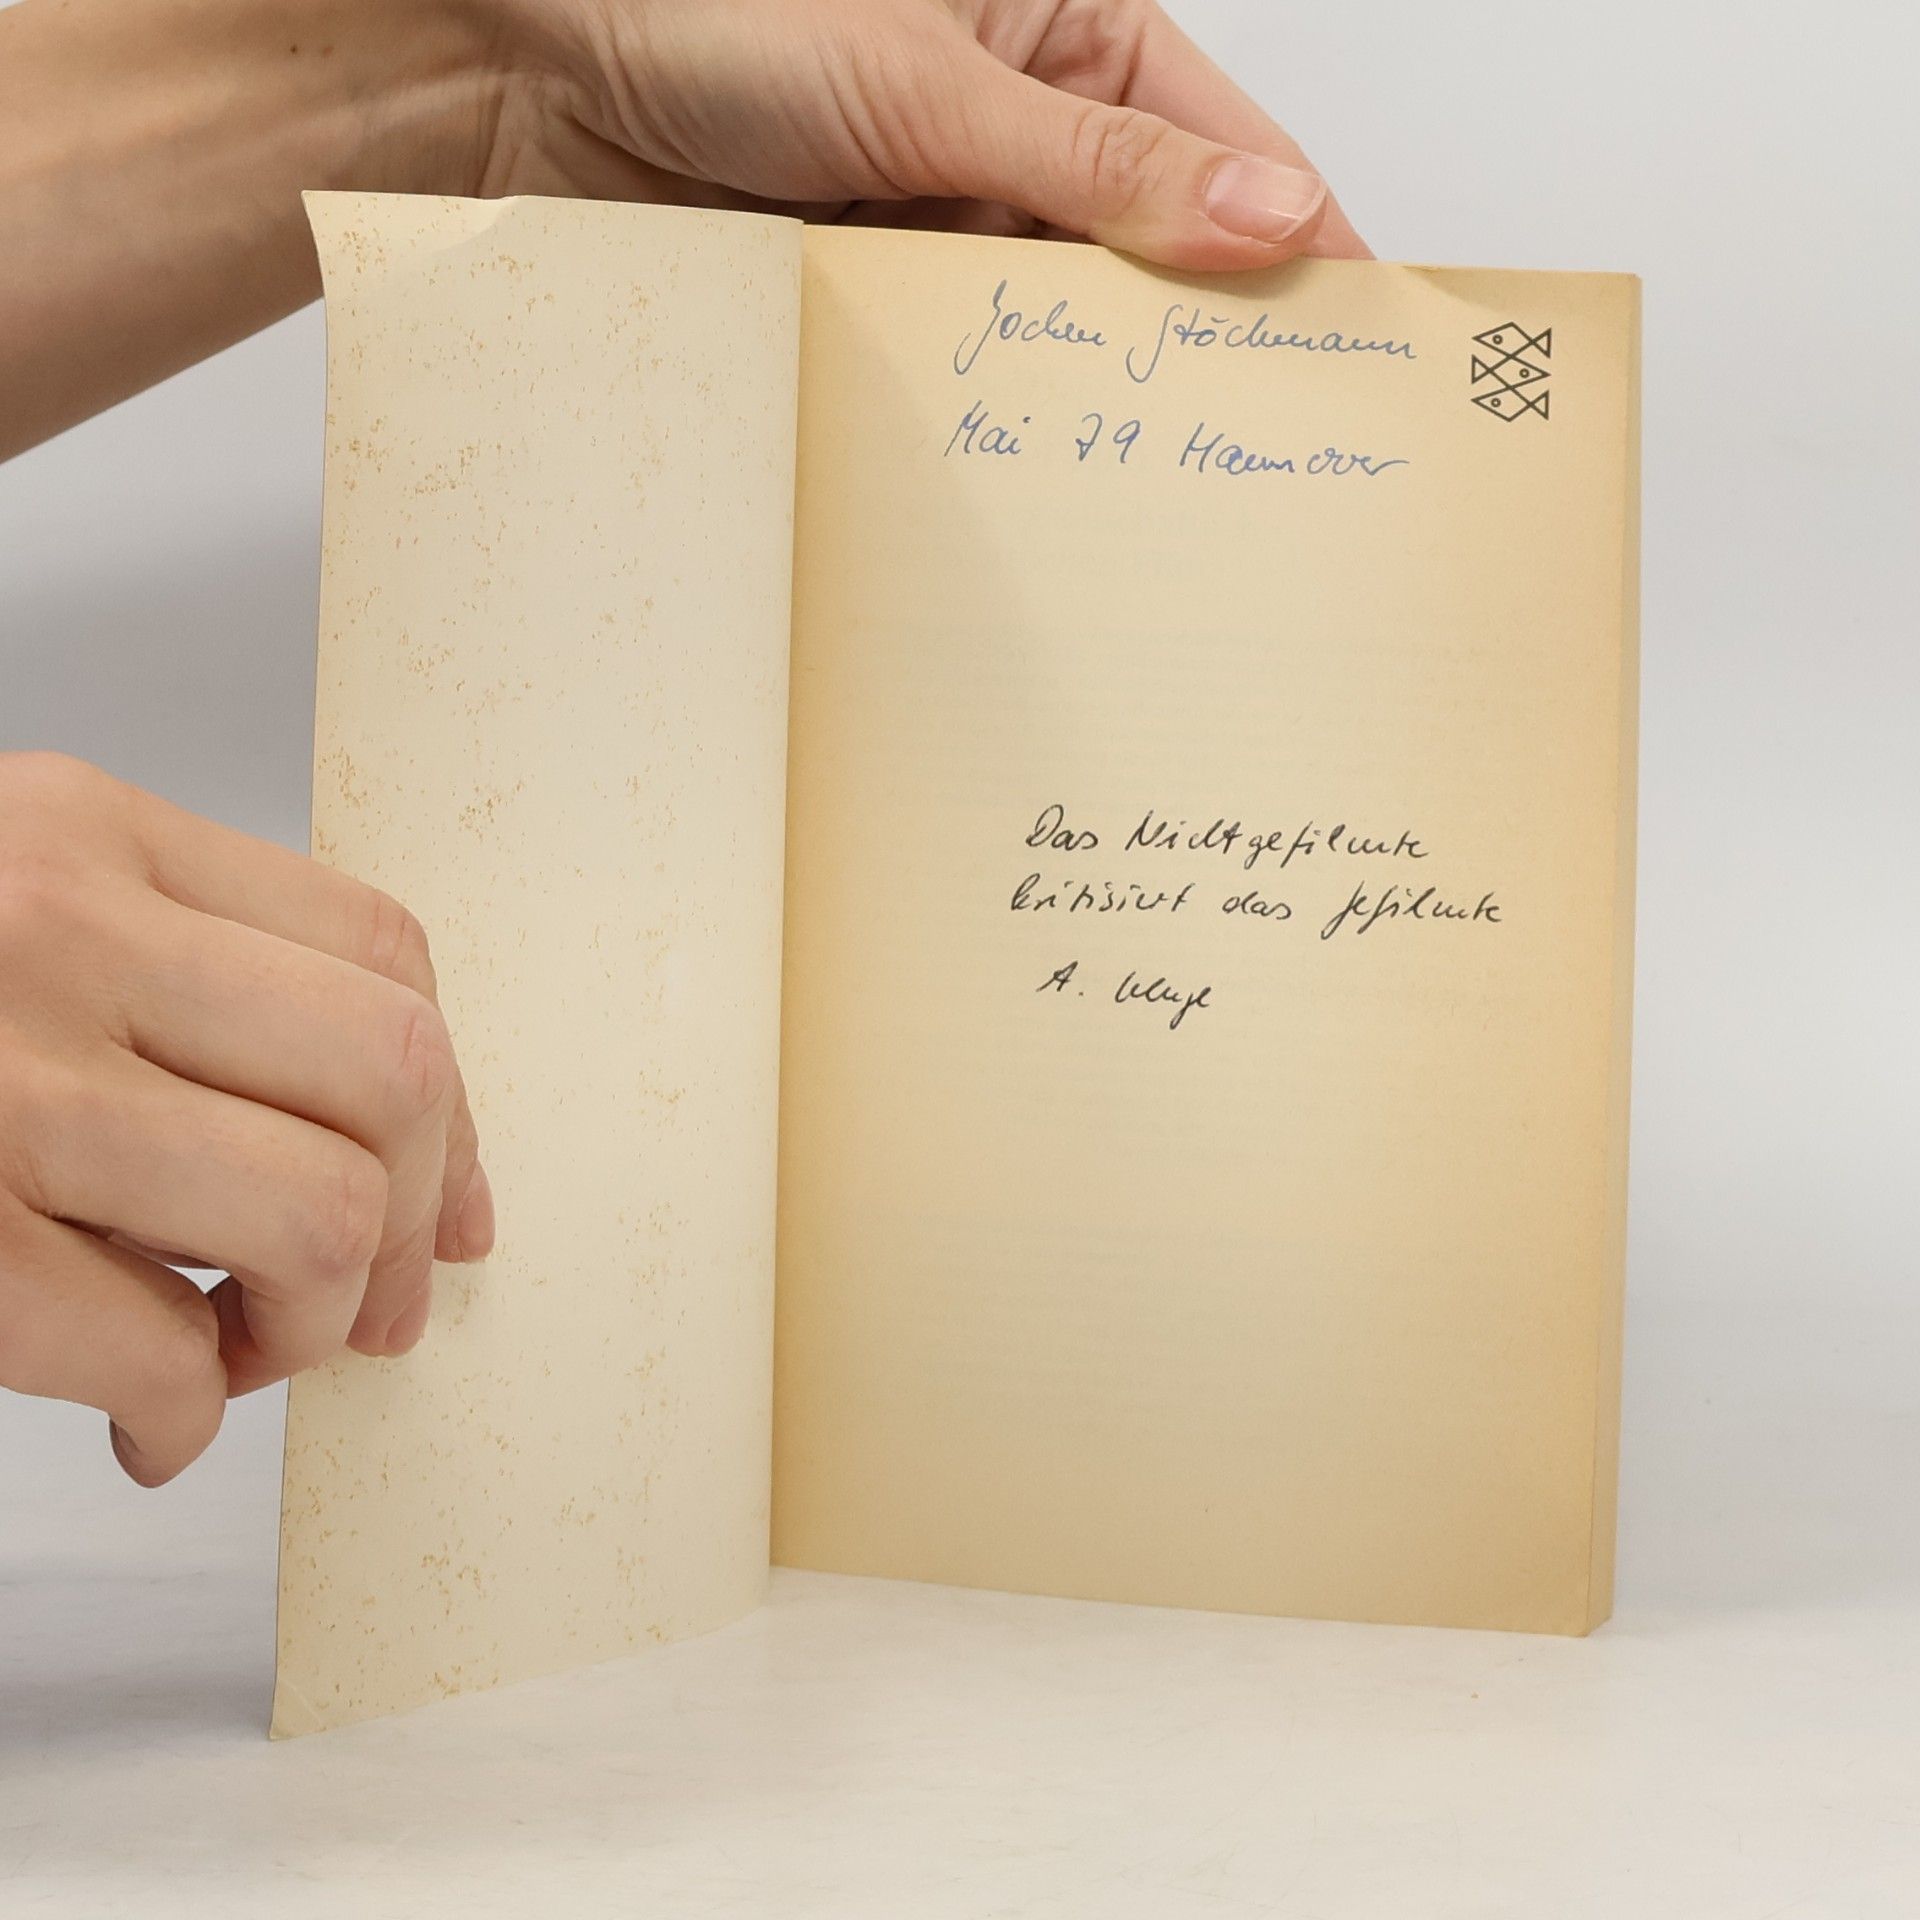 Jochen Stöckmann
Mai 79 Hannover
Das Nichtgefilmte
kritisiert das gefilmte
A. Kluge